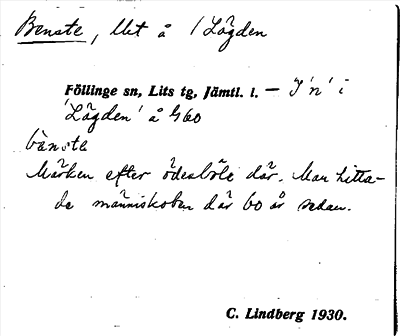 Benste, Ut å / Lägden
Föllinge sn, Lits tg, Jämtl. l. — I 'n' i
'Lägden' å 460
bänste
Märken efter ödesböle där. Man hitta-
de människoben där 60 år sedan.
C. Lindberg 1930.